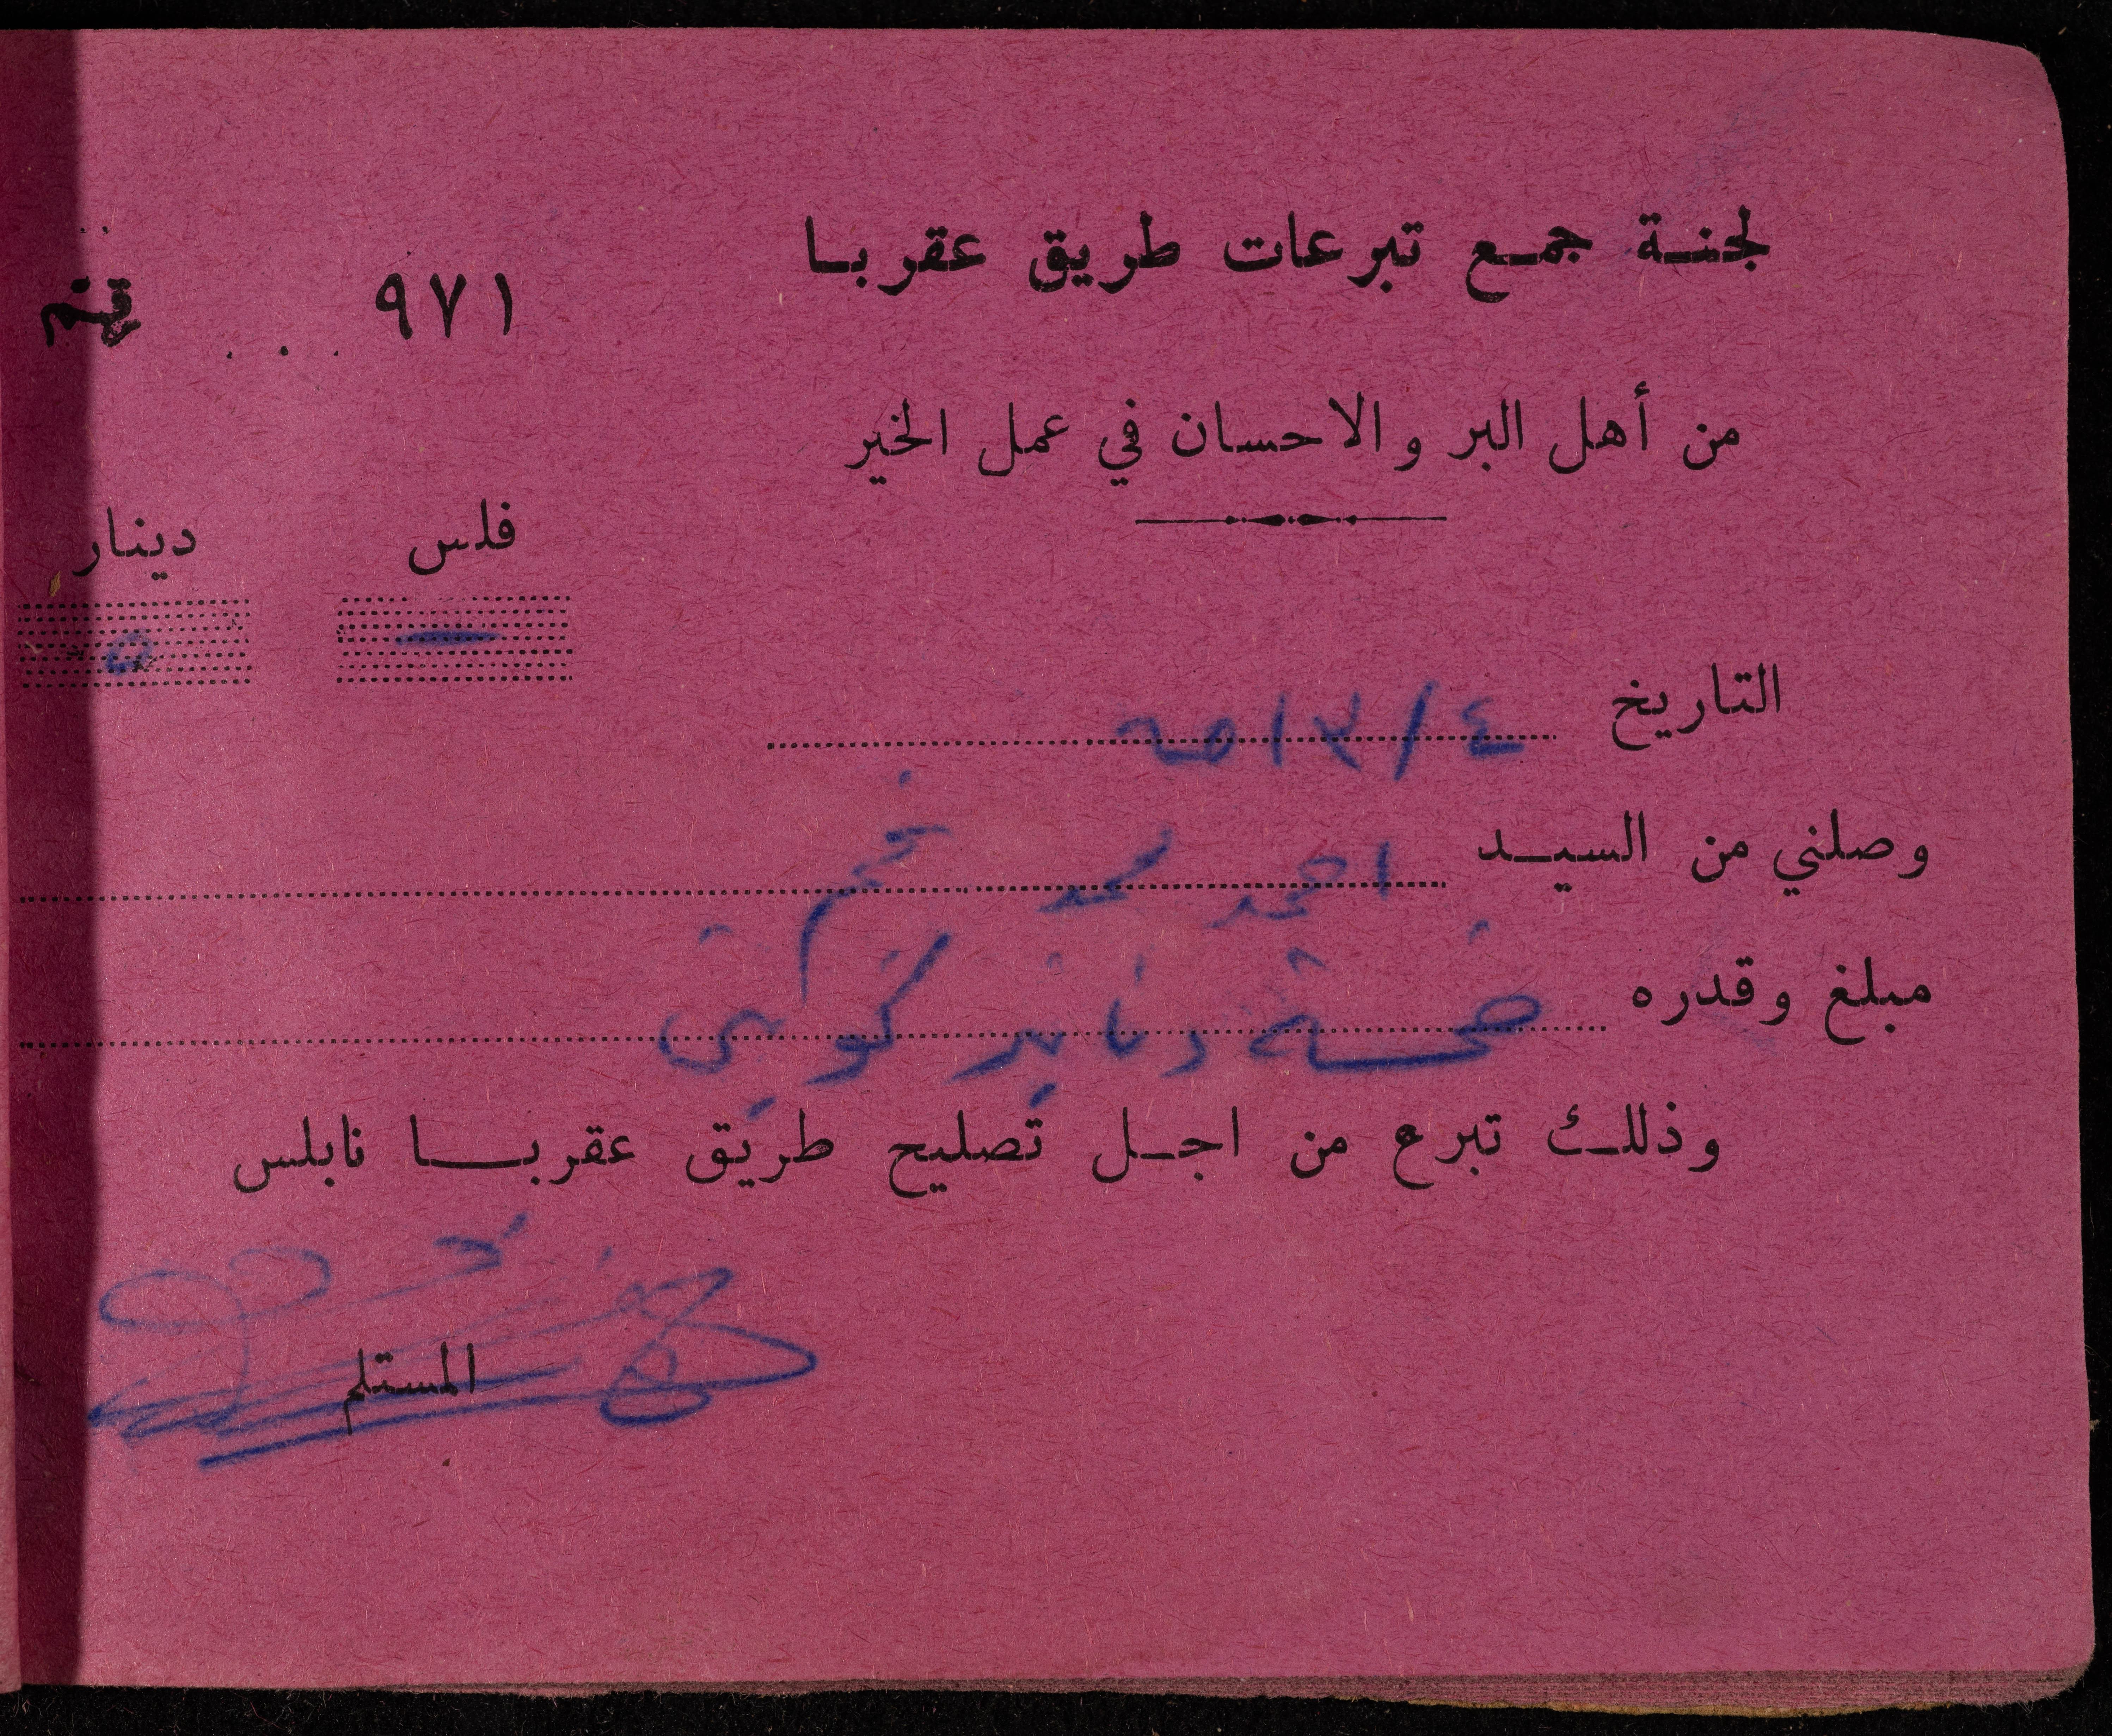 لجنة جمع تبرعات طريق عقربا
٩٧١
من أهل البر والاحسان في عمل الخير
فلس دينار
— ٥
التاريخ ٤/٣/
وصلني من السيد احمد محمد
مبلغ وقدره خمسة دنانير كويتي
وذلك تبرع من اجل تصليح طريق عقربا نابلس
المستلم